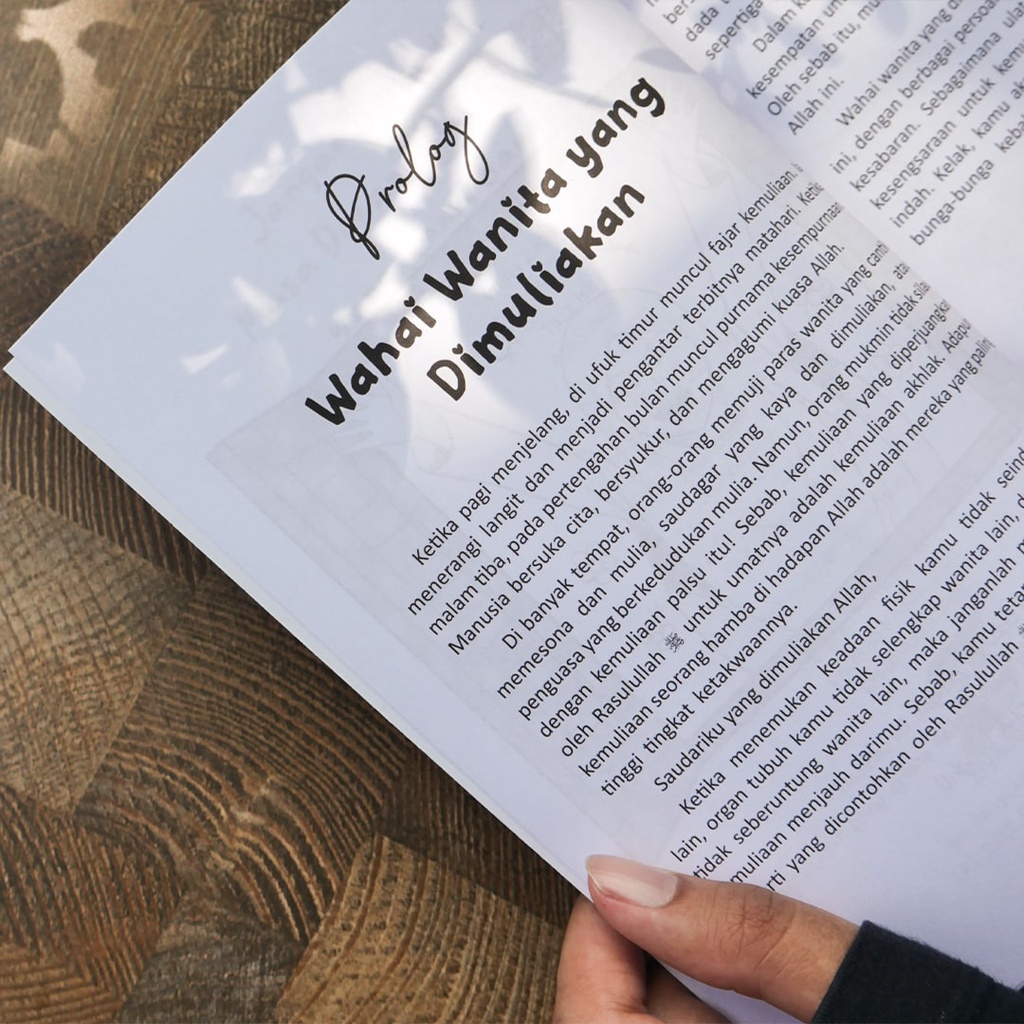 Prolog
Wahai Wanita yang
Dimuliakan
Ketika pagi menjelang, di ufuk timur muncul fajar kemuliaan.
menerangi langit dan menjadi pengantar terbitnya matahari.
malam tiba, pada pertengahan bulan muncul purnama
Manusia bersuka cita, bersyukur, dan mengagumi kuasa Allah.
Di banyak tempat, orang-orang memuji paras wanita yang
memesona dan mulia, saudagar yang kaya dan dimuliakan,
penguasa yang berkedudukan mulia. Namun, orang mukmin tidak
dengan kemuliaan palsu itu! Sebab, kemuliaan yang
oleh Rasulullah ﷺ untuk umatnya adalah kemuliaan akhlak.
kemuliaan seorang hamba di hadapan Allah adalah mereka yang
tinggi tingkat ketakwaannya.
Saudariku yang dimuliakan Allah,
Ketika menemukan keadaan fisik kamu tidak
lain, organ tubuh kamu tidak selengkap wanita lain,
tidak seberuntung wanita lain, maka janganlah
menjauh darimu. Sebab, kamu
yang dicontohkan oleh Rasulullah
Dalam
kesempatan
Oleh sebab itu,
Allah ini.
Wahai wanita yang
ini, dengan berbagai
kesabaran. Sebagaimana
kesengsaraan untuk
indah. Kelak, kamu
bunga-bunga